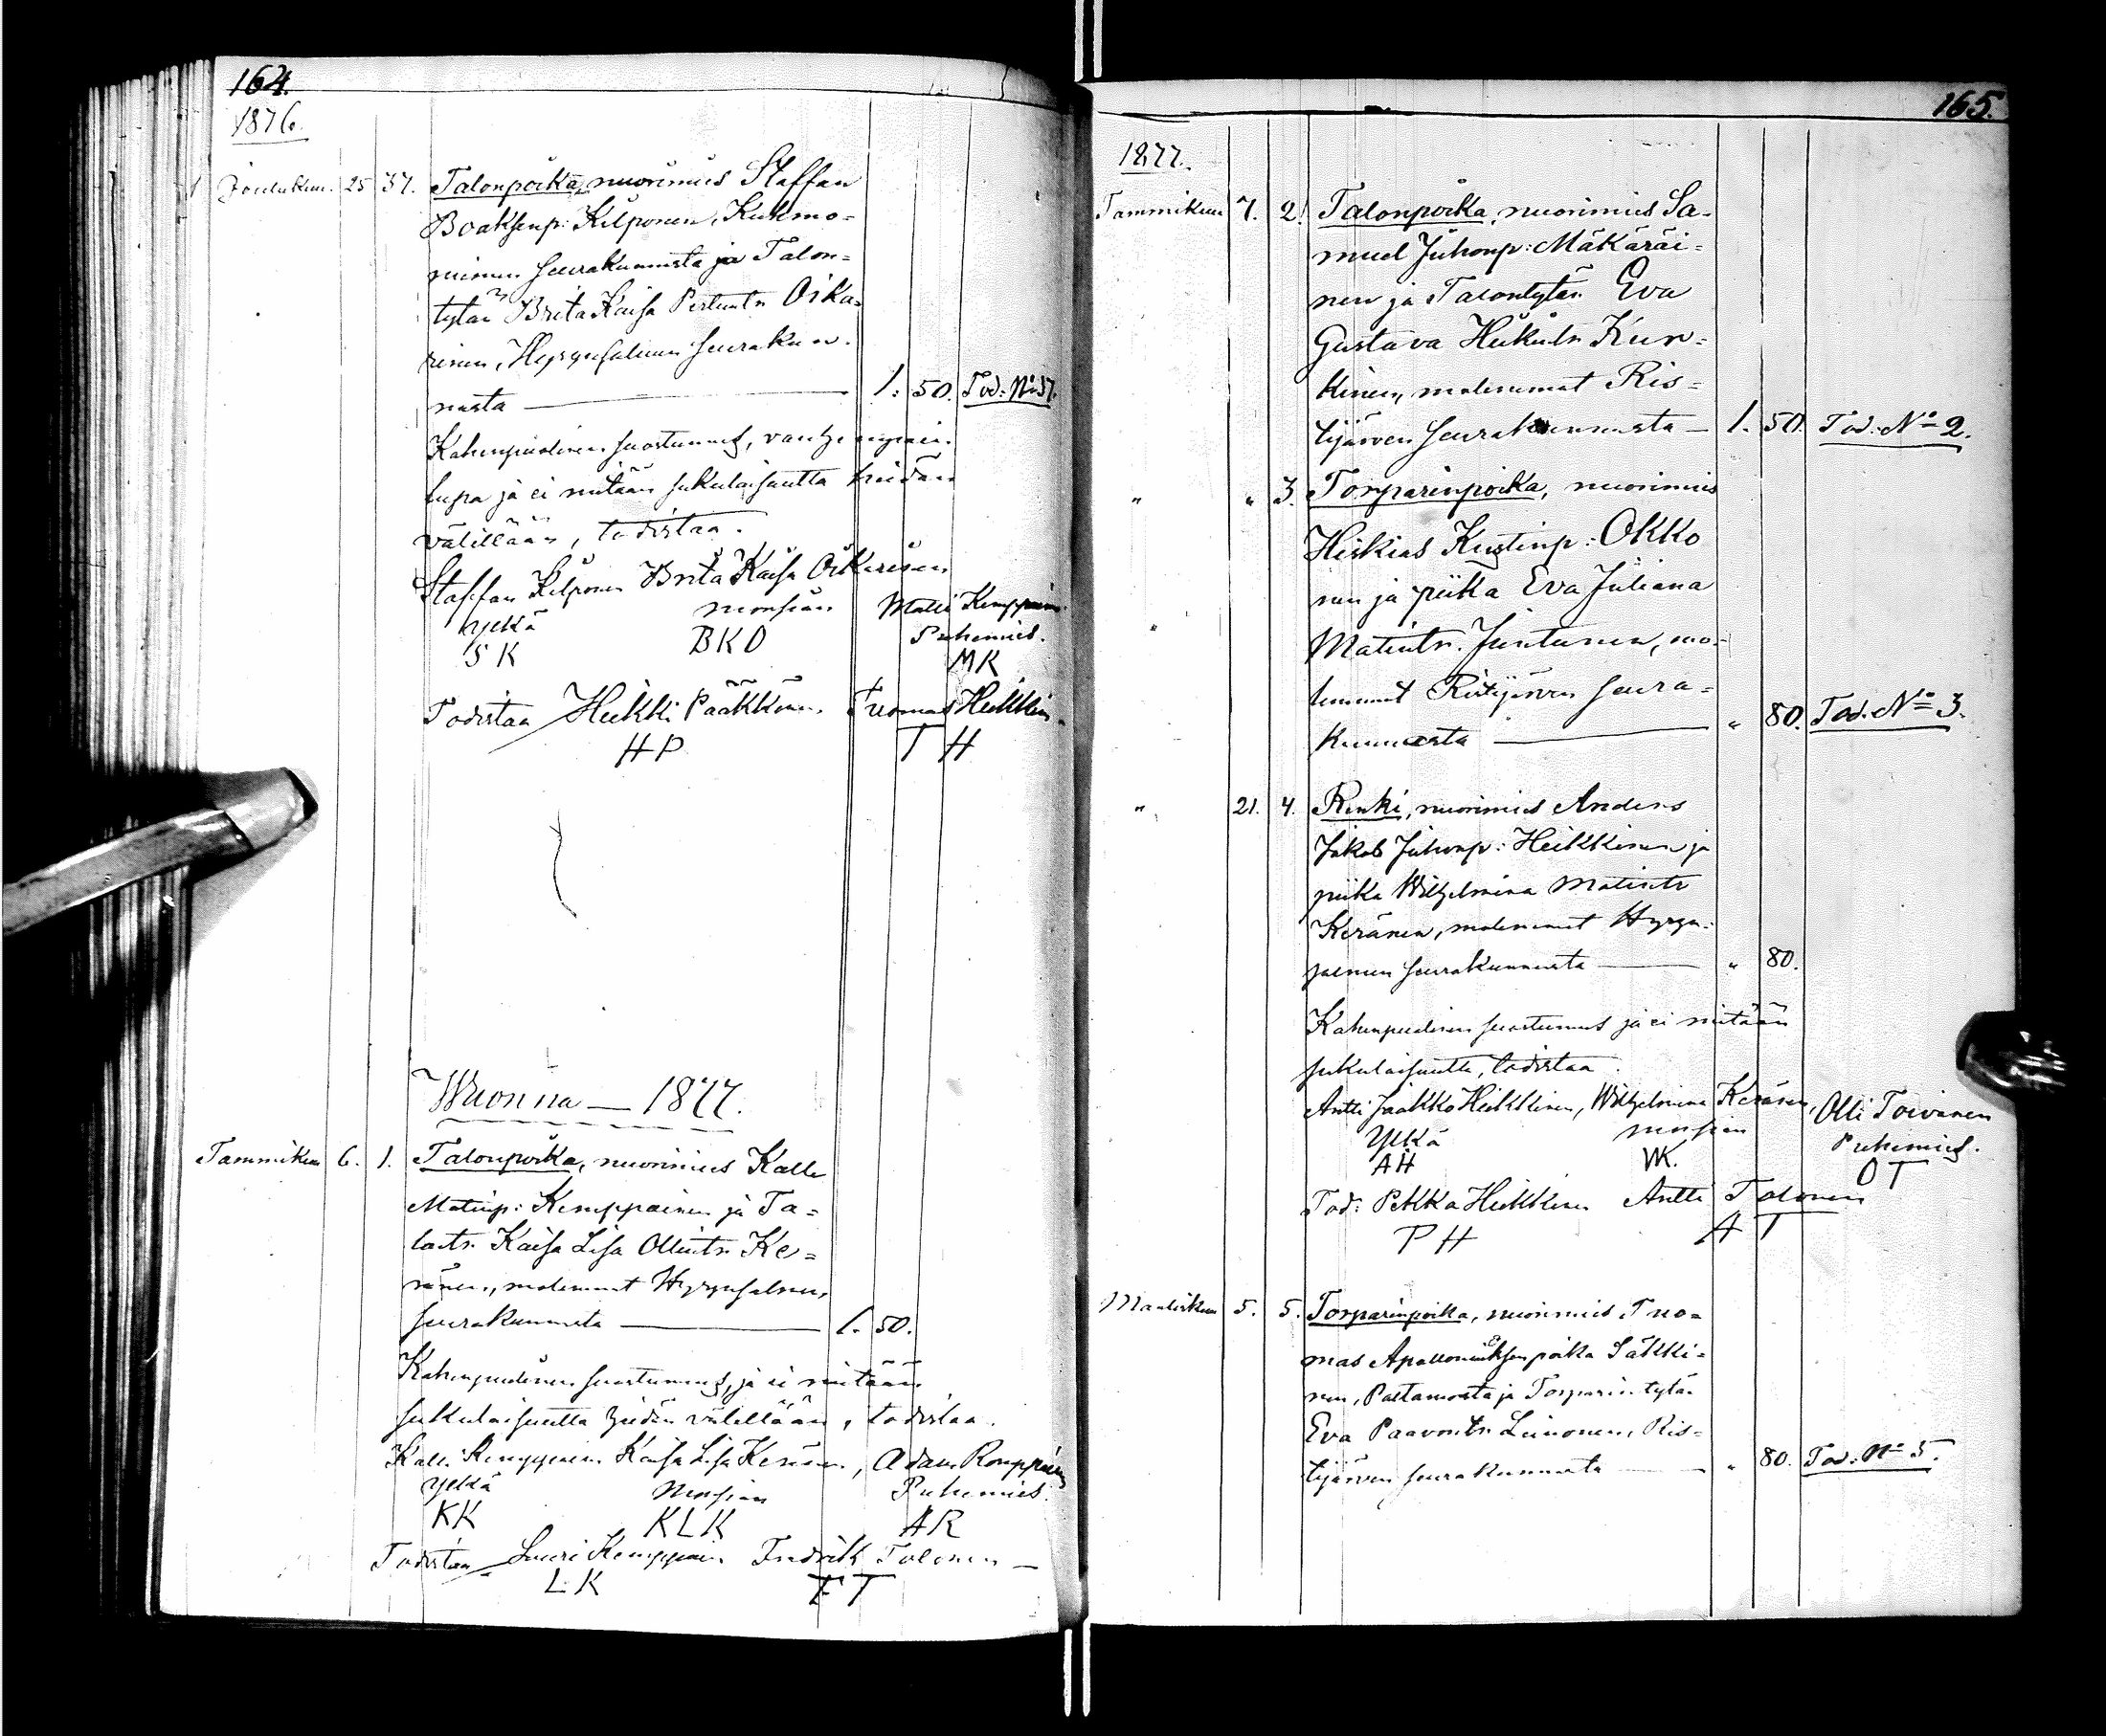 164.
1876.
Joulukuu. 25 37. Talonpoika, nuorimies Staffan
Boaksenp: Kilponen, Kuhmo-
niemen seurakunnasta ja Talon-
tytär Brita Kaisa Pertuntr Oika-
rinen, Hyrynsalmen seurakun-
nasta 1: 50. Tod: No 37.
Kahenpuolinen suostumus, vanhempain
lupa ja ei mitään sukulaisuutta heidän
välillään, todistaa.
Staffan Kilponen Brita Kaisa Oikarinen Matti Kemppainen
Ylkä morsian Puhemies.
S K B K O M K
Todistaa Heikki Pääkkönen. Tuomas Heikkinen
H P T H
Wuonna — 1877.
Tammikuu 6. 1. Talonpoika, nuorimies Kalle
Matinp: Kemppainen ja Ta-
lontr. Kaisa Lisa Ollintr. Ke-
ränen, molemmat Hyrynsalmen
seurakunnasta 1. 50.
Kahenpuolinen suostumus, ja ei mitään
sukulaisuutta heidän välillään, todistaa.
Kalle Kemppainen Kaisa Lisa Keränen, Adam Romppainen
Ylkä Morsian Puhemies.
K K K L K A R
Todistaa Lauri Kemppainen Fredrik Tolonen —
L K F T
165.
1877.
Tammikuu 7. 2. Talonpoika, nuorimies Sa-
muel Juhonp: Mäkäräi-
nen ja Talontytär Eva
Gustava Heikintr. Kun-
kinen, molemmat Ris-
tijärven seurakunnasta — 1. 50. Tod: No 2.
" " 3. Torparinpoika, nuorimies
Hiskias Kustinp: Okko
nen ja piika Eva Juliana
" Matintr. Juntunen, mo-
lemmat Ristijärven seura-
kunnasta " 80. Tod. No 3.
" 21. 4. Renki, nuorimies Anders
Jakob Juhonp: Heikkinen ja
piika Wilhelmina Matintr
Keränen, molemmat Hyryn-
salmen seurakunnasta " 80.
Kahenpuolinen suostumus ja ei mitään
sukulaisuutta, todistaa.
Antti Jaakko Heikkinen, Wilhelmina Keränen, Olli Toivanen
Ylkä morsian Puhemies.
A H WK. O T
Tod: Pekka Heikkinen Antti Tolonen
P H A T
Maaliskuu 5. 5. Torparinpoika, nuorimies Tuo-
mas Apalloniuksen poika Säkki-
nen, Paltamosta ja Torparin tytär
Eva Paavontr. Leinonen, Ris-
tijärven seurakunnasta " 80. Tod: No 5.